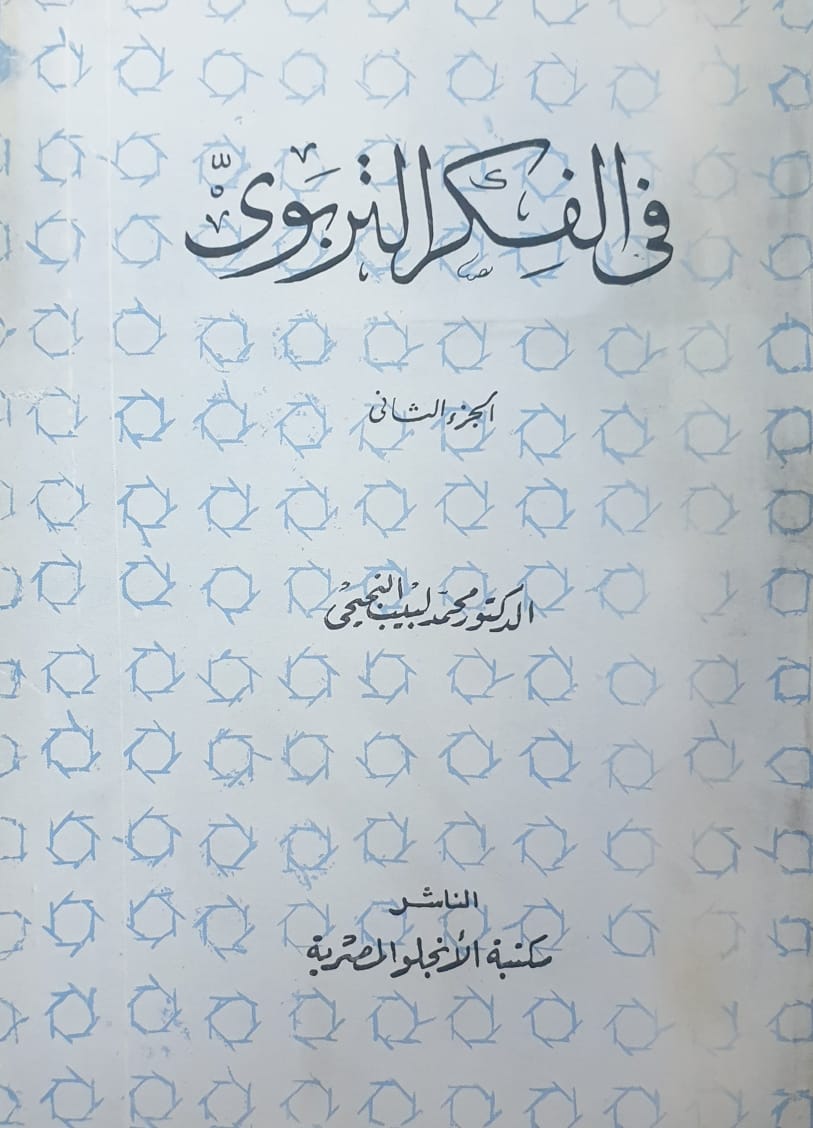 في الفكر التربوي
الجزء الثاني
الدكتور محمد لبيب النجيحي
الناشر
مكتبة الأنجلو المصرية